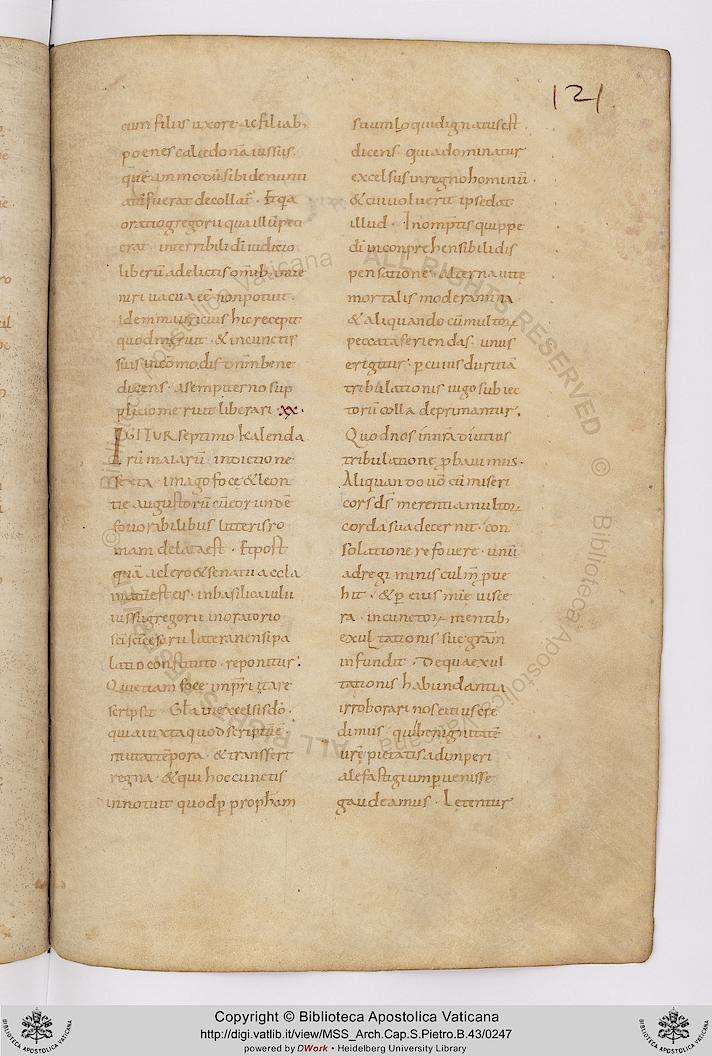 121
cum filius uxore ac filiab;
poenes calcedonã iussus.
quẽ
fuerat decollaret. Et qa
oratio gregorii qua illũ peti
erat. interribili di iudicio
liberũ a delictis omib;
niri uacua eẽ non potuit.
idem mauricius hic recepit
quod ingruit. & incunctis
suis incõmodis dnm bene
dicens. a sempiterno sup
plicio meruit liberari. xx.
IGITUR septimo kalenda
rũ maiarũ. indictione
sexta. imago foce & leon
tie augustorũ cũ eorundẽ
fauorabilibus litteris ro
mam delata est. Et post
quã a clero & senatu accla
matũ est eis. in basilica iulii
iussu gregorii in oratorio
sci cesarii lateranensi pa
latio constituto. reponitur.
Qui etiam foce inpri itare
scripsit. Gla in excelsis dõ.
qui iuxta quod scriptũ ẽ.
mutat tẽpora. & transfert
regna. & qui hoc cunctis
innotuit quod p propham
suum loqui dignatus est
dicens quia dominatur
excelsus in regno hominũ.
& cui uoluerit ipse dat
illud. Inomptis quippe
di inconprehensibili dis
pensatione. alterna uite
mortalis moderamina.
& aliquando cũ multor
peccata ferienda s. unus
erigitur. p cuius duritiã
tribulationis iugo subiec
torũ colla deprimantur.
Quod nos in nra diutius
tribulatione pbauimus.
Aliquando uõ cũ miseri
cors ds merentia multor
corda sua decernit. con
solatione refouere. unũ
ad regiminis culm pue
hit. & p eius mie uisce
ra. in cunctor mentib;
exultationis sue gram
infundit. De qua exul
tationis habundantia
irroborari nos citius cre
dimus. qui benignitatẽ
urẽ pietatis ad imperi
ale fastigium puenisse
gaudeamus. Letentur
Copyright © Biblioteca Apostolica Vaticana
http://digi.vatlib.it/view/MSS_Arch.Cap.S.Pietro.B.43/0247
powered by DWork • Heidelberg University Library